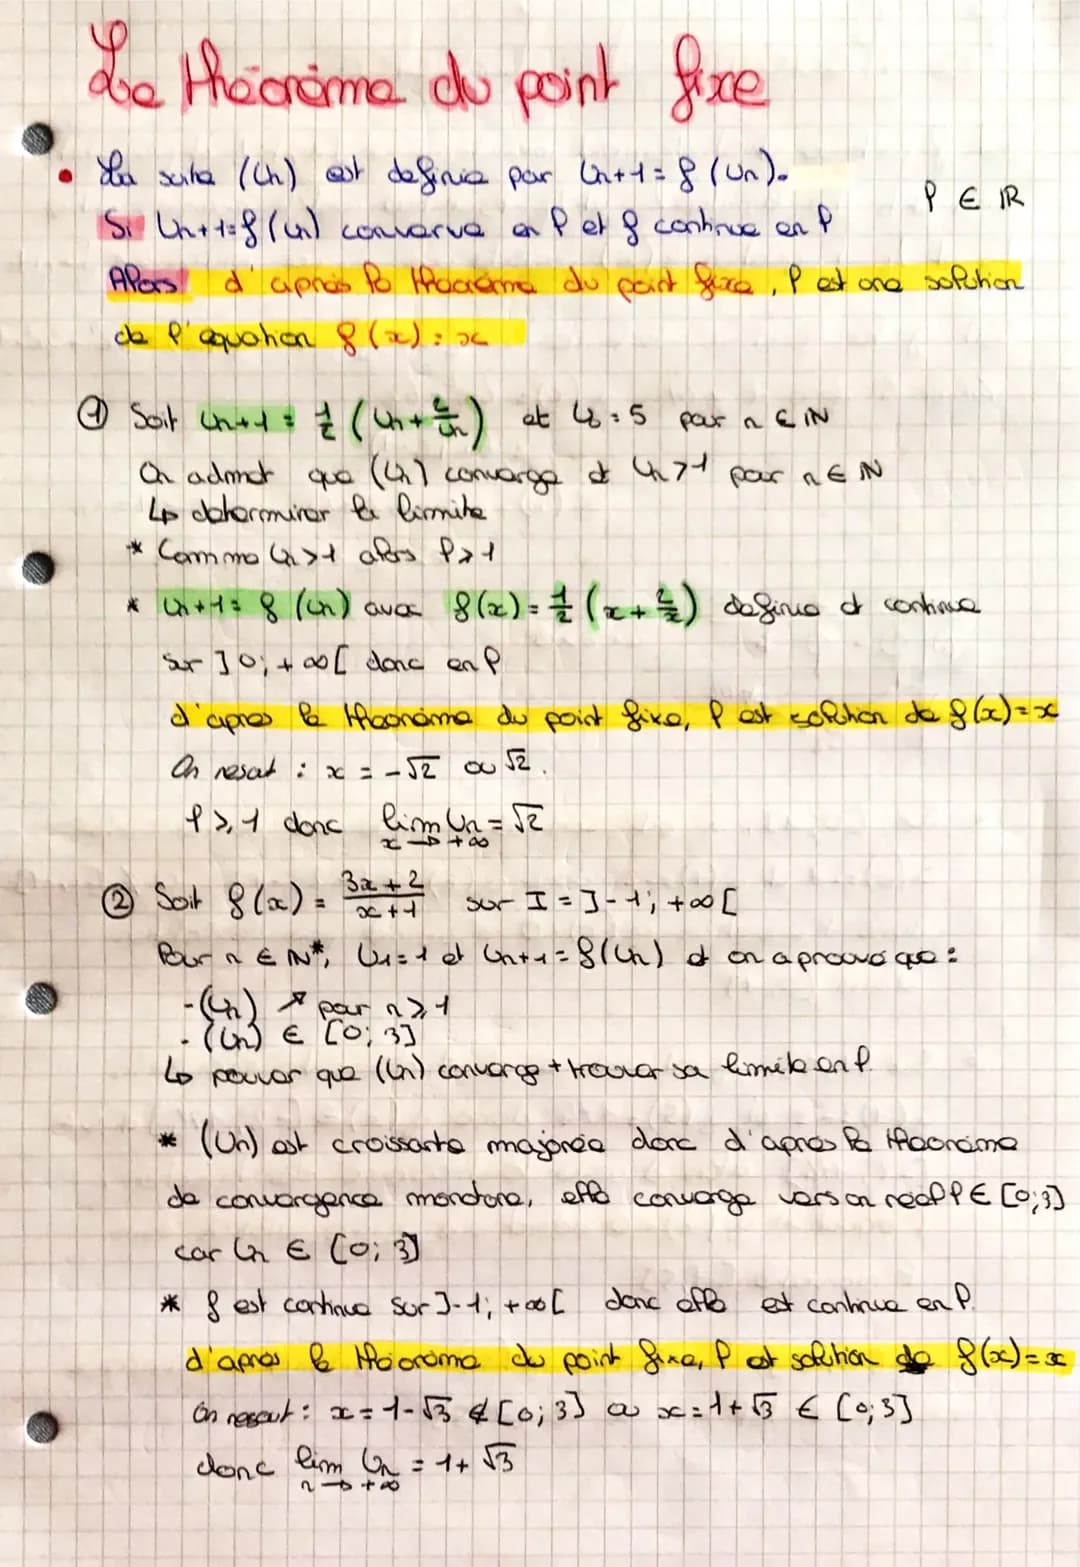 Le théorème du point fixe
• La suite (Un) est definie par Un+1 = f (Un).
l ∈ ℝ
Si Un+1=f(Un) converve en l et f continue en l
Alors d'après le théorème du point fixe, l est une solution
de l'équation f(x) = x
① Soit Un+1 = 1/2 (Un + 2/Un) et U0 = 5 pour n ∈ ℕ
On admet que (Un) converge et Un>1 pour n ∈ ℕ
↳ déterminer la limite
* Comme Un>1 alors l≥1
* Un+1 = f (Un) avec f(x) = 1/2 (x + 2/x) definie et continue
sur ]0; +∞[ donc en l
d'apres le théorème du point fixe, l est solution de f(x)=x
On resout : x = -√2 ou √2.
l ≥ 1 donc lim Un = √2
x → +∞
② Soit f(x) = (3x+2)/(x+1) sur I = ]-1; +∞[
Pour n ∈ ℕ*, U1=1 et Un+1 = f(Un) et on a prouvé que :
- (Un) ↗ pour n ≥ 1
- (Un) ∈ [0; 3]
↳ pouver que (Un) converge + trouver sa limite en l.
* (Un) est croissante majorée donc d'apres le théorème
de convergence monotone, elle converge vers un reel l ∈ [0;3]
car Un ∈ [0; 3]
* f est continue sur ]-1; +∞[ donc elle est continue en l.
d'apres le théorème du point fixe, l est solution de f(x)=x
On resout : x = 1-√3 ∉ [0; 3] ou x = 1+√3 ∈ [0;3]
donc lim Un = 1+ √3
n → +∞